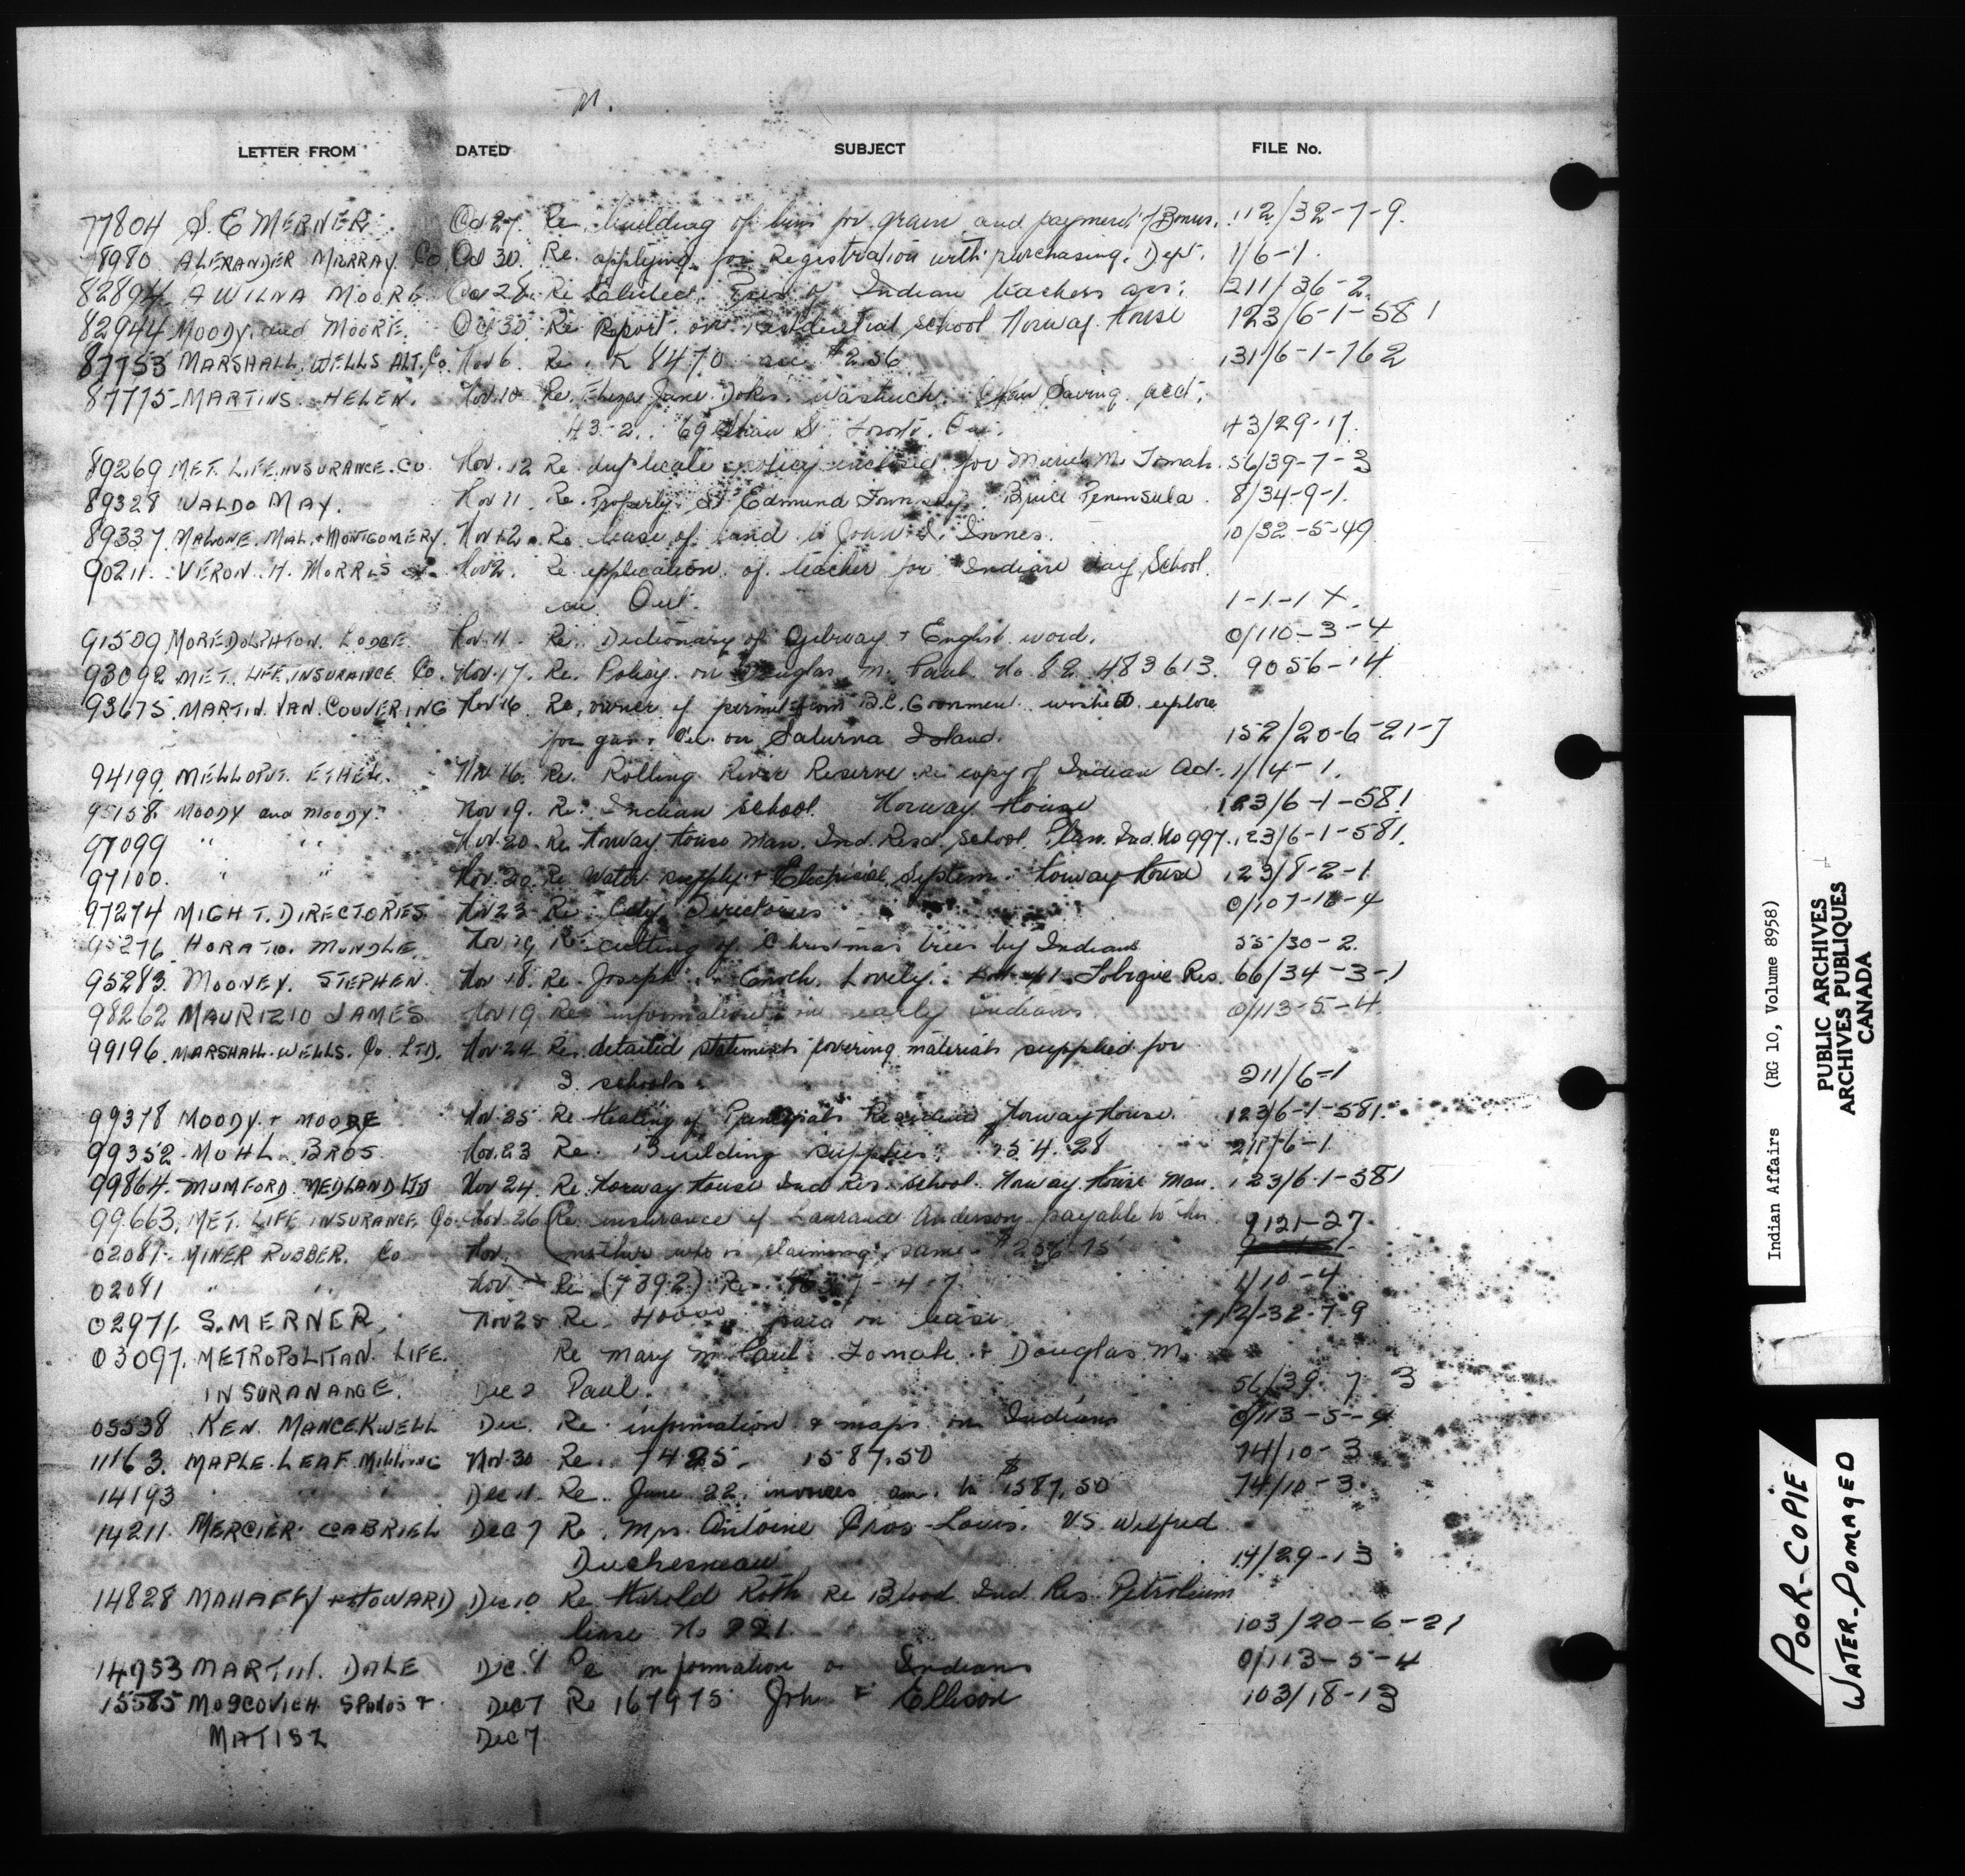 M.
LETTER FROM DATED SUBJECT FILE No.
77804 S. E MERNER. Oct 27. Re. building of bins for grain and payment of Bonus. 112/32-7-9.
78980 ALEXANDER MURRAY Co Oct 30. Re. applying for Registration with purchasing. Dept. 1/6-1.
82894 A WILNA MOORE Oct 28. Re Indian teachers ass: 211/36-2.
82944 MOODY and MOORE. Oct 30 Re Report on residential school Norway House 123/6-1-581
87753 MARSHALL. WELLS ALT. Co. Nov 6. Re. K 8470 acc $2.56 131/6-1-162
87775 MARTINS. HELEN. Nov. 10 Re. Jane Saving. acct.
43-2. 69 Shaw St Toronto. Ont. 43/29-17.
89269 MET. LIFE. INSURANCE. Co. Nov. 12 Re. duplicate policy enclosed for Muriel M. Tomah. 56/39-7-3
89328 WALDO MAY. Nov 11. Re. Property. St Edmund Township. Bruce Peninsula. 8/34-9-1.
89337 MALONE. MAL. + MONTGOMERY. Nov 12. Re lease of land to John S. Innes. 10/32-5-49
90211. VERON. H. MORRIS Nov 2. Re application of teacher for Indian day School.
in Ont. 1-1-1 X.
91509 LODGE. Nov. 11. Re. Dictionary of Ojibway + English word. 0/110-3-4
93092 MET. LIFE INSURANCE Co. Nov. 17. Re. Policy on Douglas M. Paul No 82 483613. 9056-14
93675. MARTIN. VAN. COUVERING Nov 16 Re. owner of permit from B.C. Goonment wishes to explore
for gas + Oil on Saturna Island. 152/20-6-21-7
94199. ETHEL. Nov 16. Re. Rolling River Reserve. Re copy of Indian Act. 1/14-1.
95158. MOODY and MOODY. Nov 19. Re. Indian school Norway House 123/6-1-581
97099 " " Nov. 20. Re Norway House Man. Ind. Resd. School. Plan. Ind. No 997. 123/6-1-581.
97100. " " Nov. 20 Re Water supply + Electrical System. Norway House 123/8-2-1
97274 MIGHT. DIRECTORIES Nov 23 Re. City Directories 0/107-16-4
95276 HORATIO. MUNDLE. Nov. 19 Re cutting of Christmas trees by Indians 55/30-2.
95283. MOONEY. STEPHEN. Nov. 18. Re. Joseph + Enoch. Lovely. Lot 41. Tobique Res. 66/34-3-1
98262 MAURIZIO JAMES Nov 19 Re information on early indians 0/113-5-4.
99196. MARSHALL-WELLS. Co. LTD. Nov. 24 Re. detailed statements covering materials supplied for
3 schools. 211/6-1
99378 MOODY. + MOORE Nov. 25 Re Heating of Principals Residence Norway House. 123/6-1-581.
99352 MOHL. BROS. Nov. 23 Re. Building supplies. 211/6-1.
99864. MUMFORD. MEDLAND LTD Nov 24. Re. Norway House Ind Res. School. Norway. House Man. 123/6-1-581
99663. MET. LIFE INSURANCE Co. Nov. 26 Re. insurance of Laurance Anderson payable to his 9121-27
02081. MINER RUBBER. Co Nov. mother who is claiming same. $256.75
02081 " " Nov Re (7392) Re. 1/10-4
02971. S. MERNER. Nov 25 Re. 400.00 paid on lease 112/32-7-9
03097. METROPOLITAN. LIFE. Re Mary M. Paul. Tomah + Douglas M.
INSURANANCE. Dec 2 Paul. 56/39-7-3
05538 KEN. MANCEKWELL Dec. Re. information & maps on Indians 0/113-5-4
11163. MAPLE. LEAF. MILLING Nov. 30 Re. 7425. 1587.50 74/10-3
14193 " " " Dec 11. Re. June 22. invoices am. to $1587.50 74/10-3
14211. MERCIER GABRIEL Dec 7 Re. Mrs. Antoine Gros-Louis. VS. Wilfred
Duchesneau 14/29-13
14828 MAHAFFY + HOWARD Dec 10 Re Harold Roth Re Blood Ind. Res. Petroleum
lease No 221 103/20-6-21
14953 MARTIN. DALE Dec. 9 Re information on Indians 0/113-5-4
15585 MOSCOVICH SPANOS + Dec 7 Re 167975 John F Ellison 103/18-13
MATISZ Dec 7
Indian Affairs (RG 10, Volume 8958)
PUBLIC ARCHIVES
ARCHIVES PUBLIQUES
CANADA
POOR-COPIE
WATER-DOMAGED